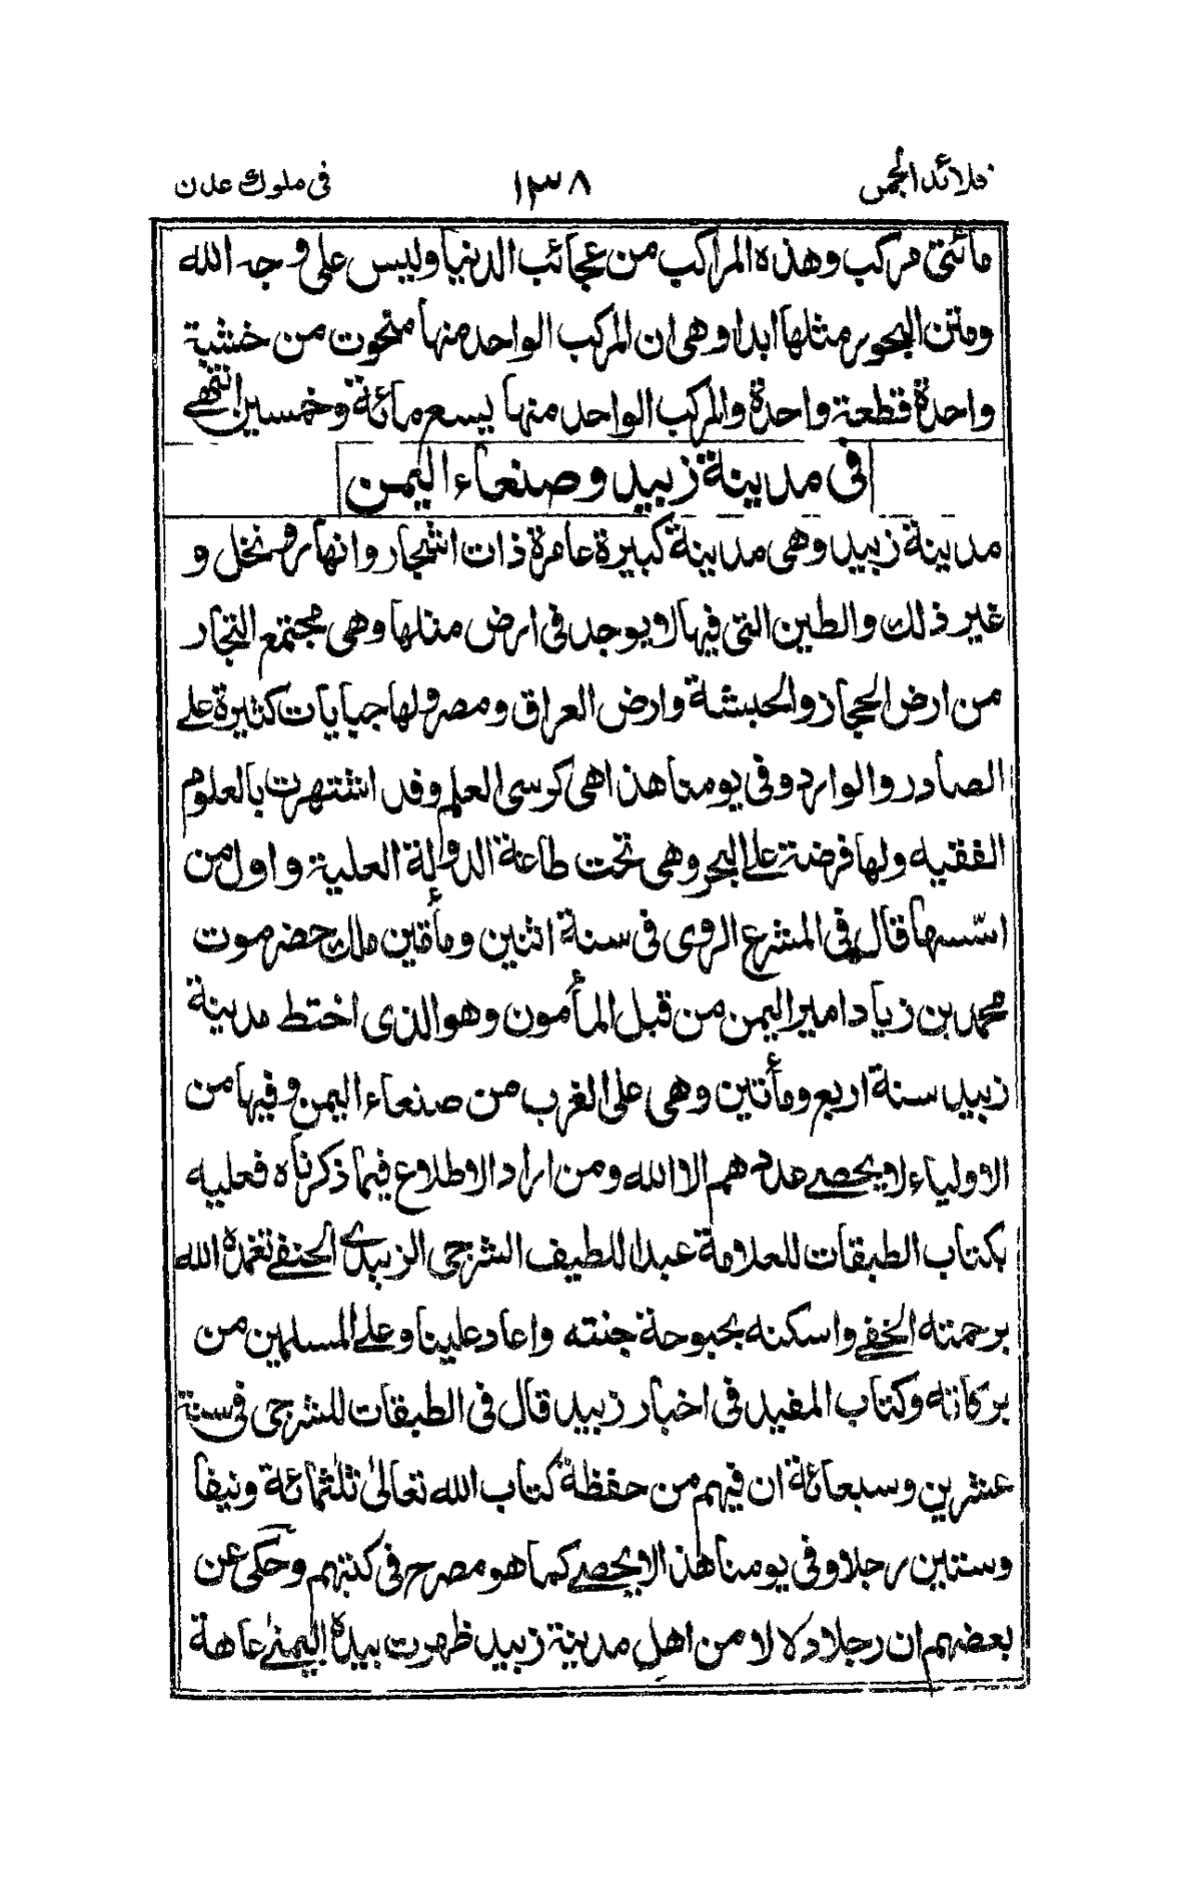 قلائد الجمن ١٣٨ في ملوك عدن
مائتي مركب وهذه المراكب من عجائب الدنيا وليس على وجه الله
ومتن البحور مثلها ابدا وهي ان المركب الواحد منها منحوت من خشبة
واحدة قطعة واحدة والمركب الواحد منها يسع مائة وخمسين انتهى
في مدينة زبيد وصنعاء اليمن
مدينة زبيد وهي مدينة كبيرة عامرة ذات اشجار وانهار ونخل و
غير ذلك والطين التي فيها لا يوجد في ارض مثلها وهي مجتمع التجار
من ارض الحجاز والحبشة وارض العراق ومصر ولها جبايات كثيرة على
الصادر والوارد وفي يومنا هذا هي كرسي العلم وقد اشتهرت بالعلوم
الفقيه ولها فرضة على البحر وهي تحت طاعة الدولة العلية واول من
اسّسها قال في المشرع الروى في سنة اثنين ومأتين ملك حضرموت
محمد بن زياد امير اليمن من قبل المأمون وهو الذي اختط مدينة
زبيد سنة اربع ومأتين وهي على الغرب من صنعاء اليمن وفيها من
الاولياء لا يحصى عددهم الا الله ومن اراد الاطلاع فيما ذكرناه فعليه
بكتاب الطبقات للعلامة عبد اللطيف الشرجي الزبيدي الحنفي تغمده الله
برحمته الخفي واسكنه بحبوحة جنته واعاد علينا وعلى المسلمين من
بركاته وكتاب المفيد في اخبار زبيد قال في الطبقات للشرجي في سنة
عشرين وسبعمائة ان فيهم من حفظة كتاب الله تعالى ثلثمائة ونيفا
وستين رجلا وفي يومنا هذا لا يحصى كما هو مصرح في كتبهم وحكى عن
بعضهم ان رجلا دلالا من اهل مدينة زبيد ظهرت بيده اليمنى عاهة